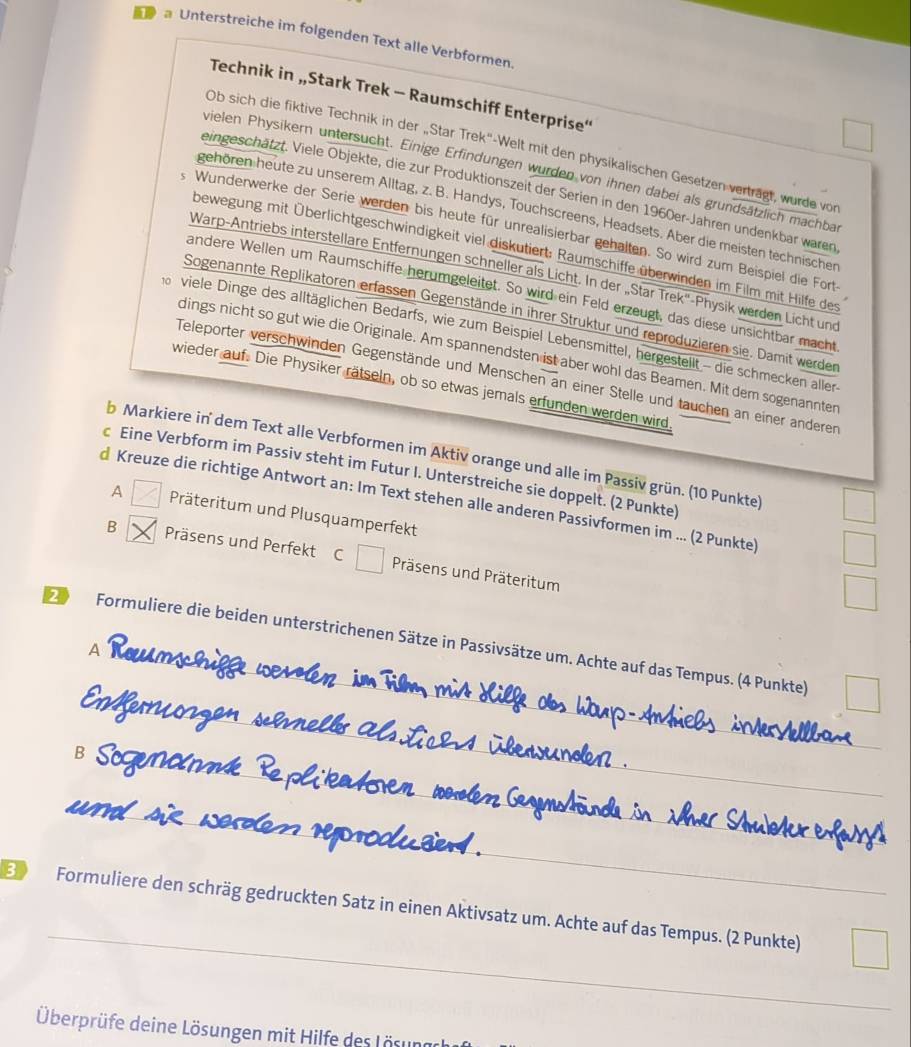 1 a Unterstreiche im folgenden Text alle Verbformen.
Technik in „Stark Trek – Raumschiff Enterprise“
Ob sich die fiktive Technik in der „Star Trek“-Welt mit den physikalischen Gesetzen verträgt, wurde von
vielen Physikern untersucht. Einige Erfindungen wurden von ihnen dabei als grundsätzlich machbar
eingeschätzt. Viele Objekte, die zur Produktionszeit der Serien in den 1960er-Jahren undenkbar waren,
gehören heute zu unserem Alltag, z. B. Handys, Touchscreens, Headsets. Aber die meisten technischen
5 Wunderwerke der Serie werden bis heute für unrealisierbar gehalten. So wird zum Beispiel die Fort-
bewegung mit Überlichtgeschwindigkeit viel diskutiert: Raumschiffe überwinden im Film mit Hilfe des
Warp-Antriebs interstellare Entfernungen schneller als Licht. In der „Star Trek“-Physik werden Licht und
andere Wellen um Raumschiffe herumgeleitet. So wird ein Feld erzeugt, das diese unsichtbar macht.
Sogenannte Replikatoren erfassen Gegenstände in ihrer Struktur und reproduzieren sie. Damit werden
10 viele Dinge des alltäglichen Bedarfs, wie zum Beispiel Lebensmittel, hergestellt – die schmecken aller-
dings nicht so gut wie die Originale. Am spannendsten ist aber wohl das Beamen. Mit dem sogenannten
Teleporter verschwinden Gegenstände und Menschen an einer Stelle und tauchen an einer anderen
wieder auf. Die Physiker rätseln, ob so etwas jemals erfunden werden wird.
b Markiere in dem Text alle Verbformen im Aktiv orange und alle im Passiv grün. (10 Punkte)
c Eine Verbform im Passiv steht im Futur I. Unterstreiche sie doppelt. (2 Punkte)
d Kreuze die richtige Antwort an: Im Text stehen alle anderen Passivformen im ... (2 Punkte)
A Präteritum und Plusquamperfekt
B Präsens und Perfekt C Präsens und Präteritum
2 Formuliere die beiden unterstrichenen Sätze in Passivsätze um. Achte auf das Tempus. (4 Punkte)
A Raumschiffe werden im Film mit Hilfe des Warp-Antriebs interstellbare
Entfernungen schneller als Licht überwunden.
B Sogenannte Replikatoren werden Gegenstände in ihrer Struktur erfasst
und sie werden reproduziert.
3 Formuliere den schräg gedruckten Satz in einen Aktivsatz um. Achte auf das Tempus. (2 Punkte)
Überprüfe deine Lösungen mit Hilfe des